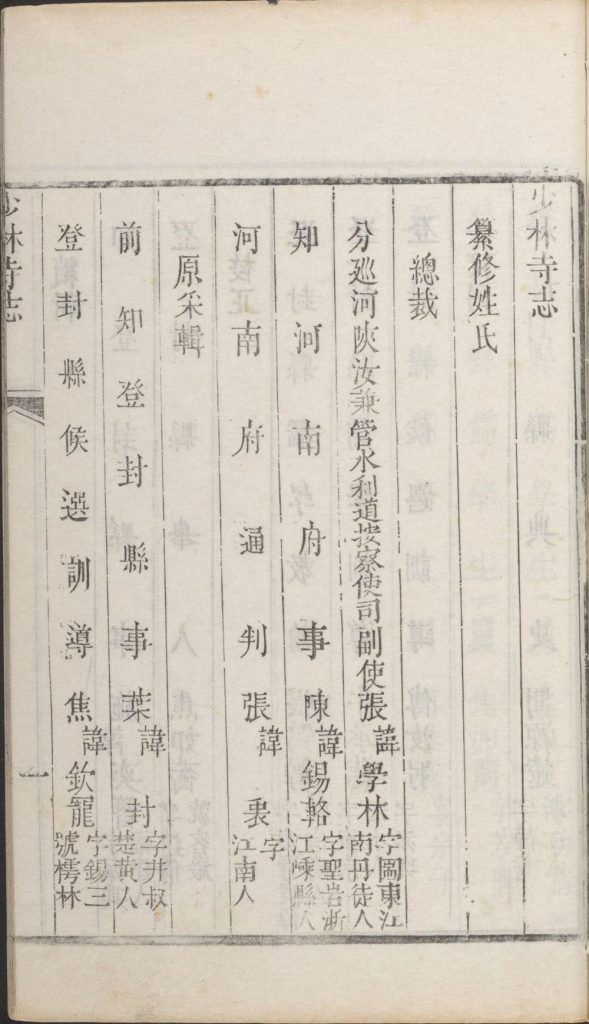 少林寺志
纂修姓氏
總裁
分廵河陜汝兼管水利道按察使司副使張諱學林字圖東江南丹徒人
知河南府事陳諱錫輅字聖岩浙江嵊縣人
河南府通判張諱 字江南人
原采輯
前知登封縣事葉諱封字井叔楚黃人
登封縣候選訓導焦諱欽寵字錫三號樗林
少林寺志
一